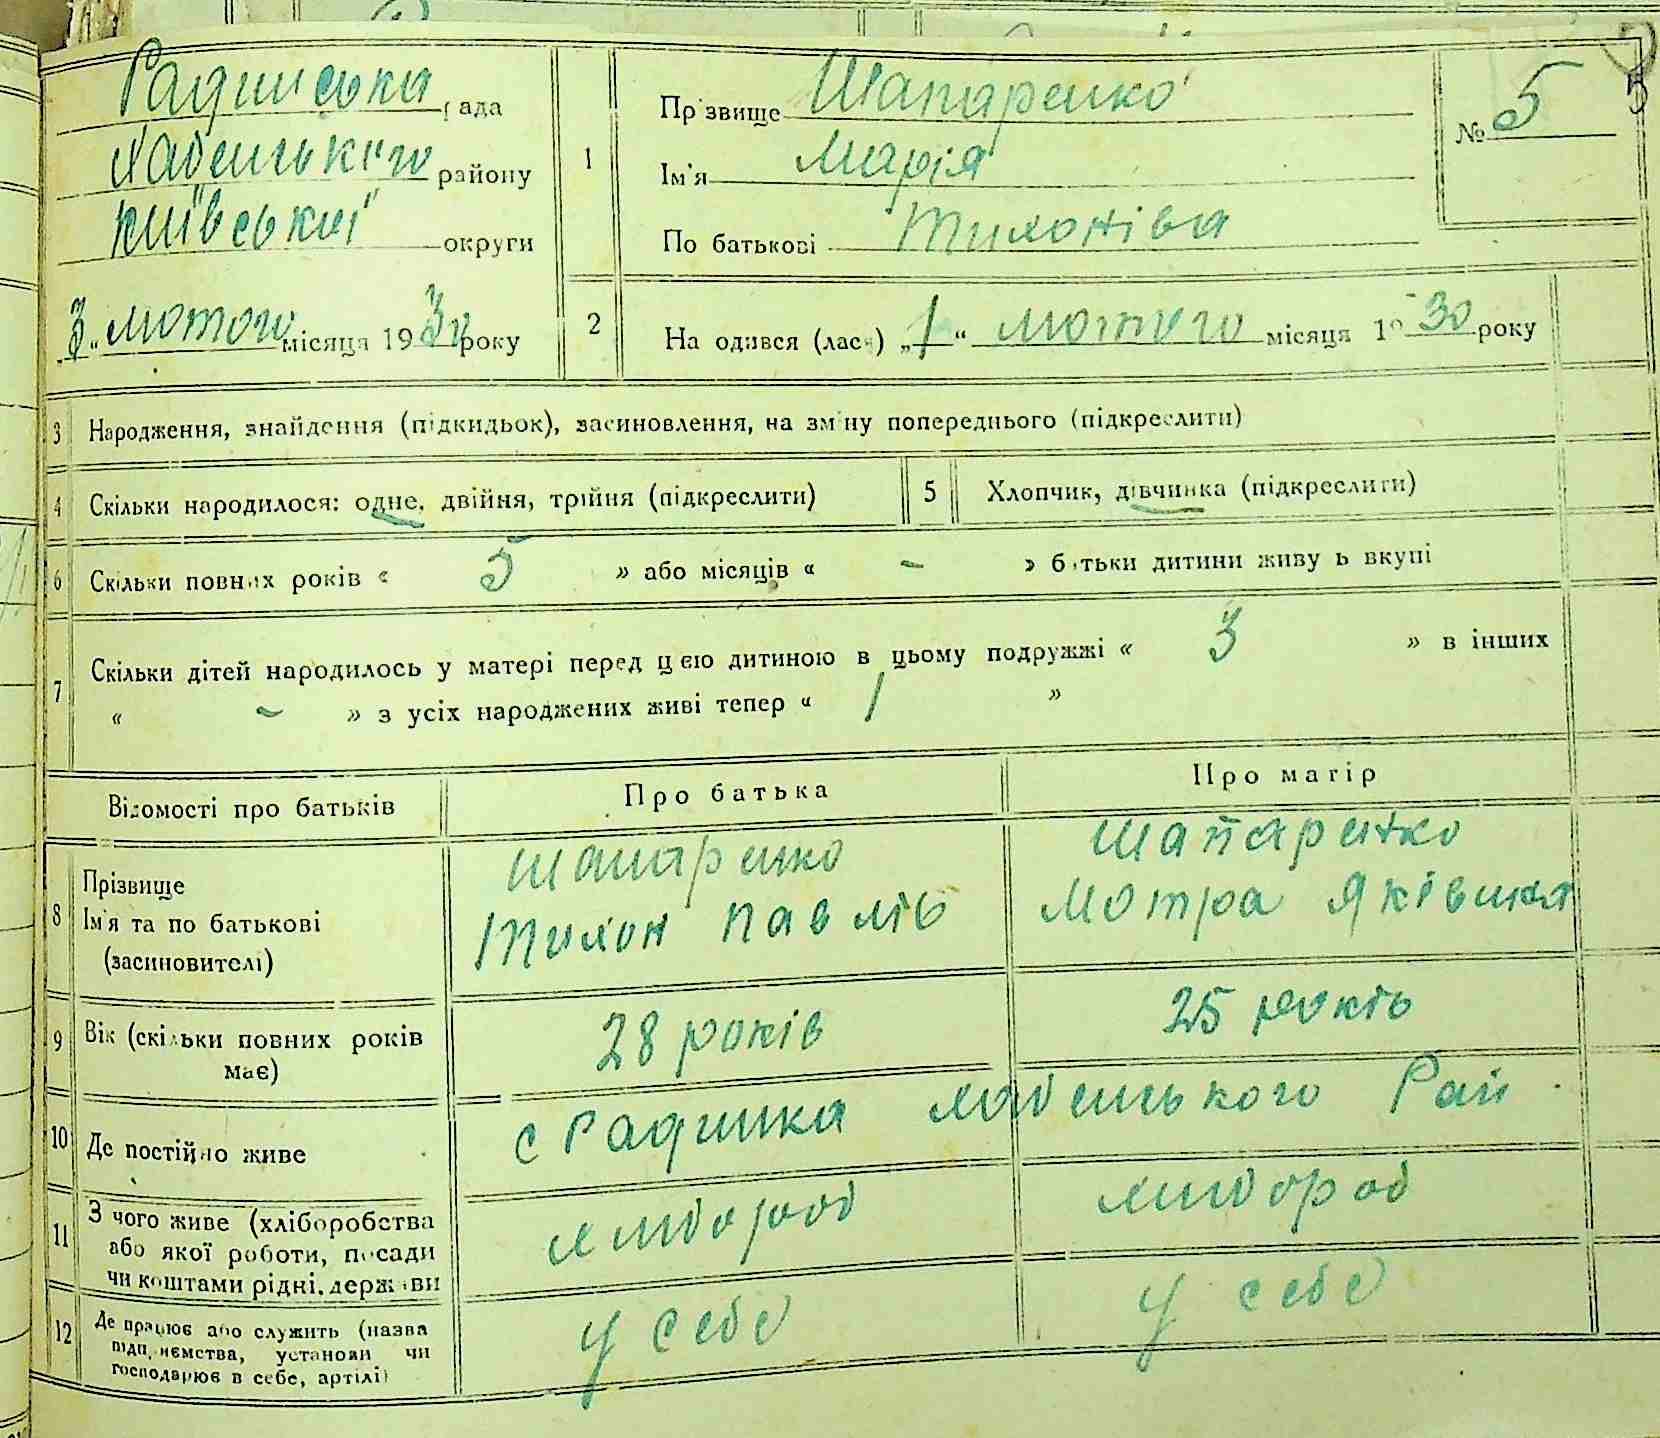 Радинська рада
Хабенського району
Київської округи
„3“ лютого місяця 1930 року
1
Прізвище Шапаренко
Ім'я Марія
По батькові Тихонівна
№ 5
5
2
Народився (лася) „1“ лютого місяця 1930 року
3 Народження, знайдення (підкидьок), засиновлення, на зміну попереднього (підкреслити)
4 Скільки народилося: одне, двійня, трійня (підкреслити)
5 Хлопчик, дівчинка (підкреслити)
6 Скільки повних років « 5 » або місяців « - » батьки дитини живуть вкупі
7 Скільки дітей народилось у матері перед цією дитиною в цьому подружжі « 3 » в інших
« - » з усіх народжених живі тепер « 1 »
Відомості про батьків Про батька Про матір
8 Прізвище
Ім'я та по батькові
(засиновителі)
Шапаренко
Тихон Павлів
Шапаренко
Мотра Яківна
9 Вік (скільки повних років
має)
28 років
25 років
10 Де постійно живе
с Радинка Хабенського Рай
11 З чого живе (хліборобства
або якої роботи, посади
чи коштами рідні, держави
хлібороб
хлібороб
12 Де працює або служить (назва
підприємства, установи чи
господарює в себе, артілі)
у себе
у себе